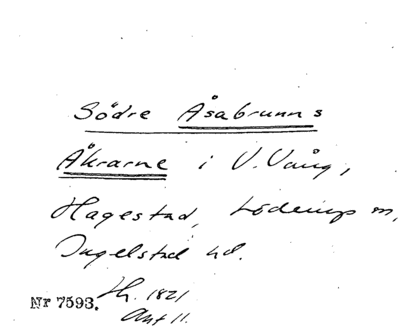 Södre Åsabrunns
Åkrarne i V. Vång,
Hagestad, Löderup m,
Ingelstad hd.
Hh. 1821
Nr 7593.
Akt 11.